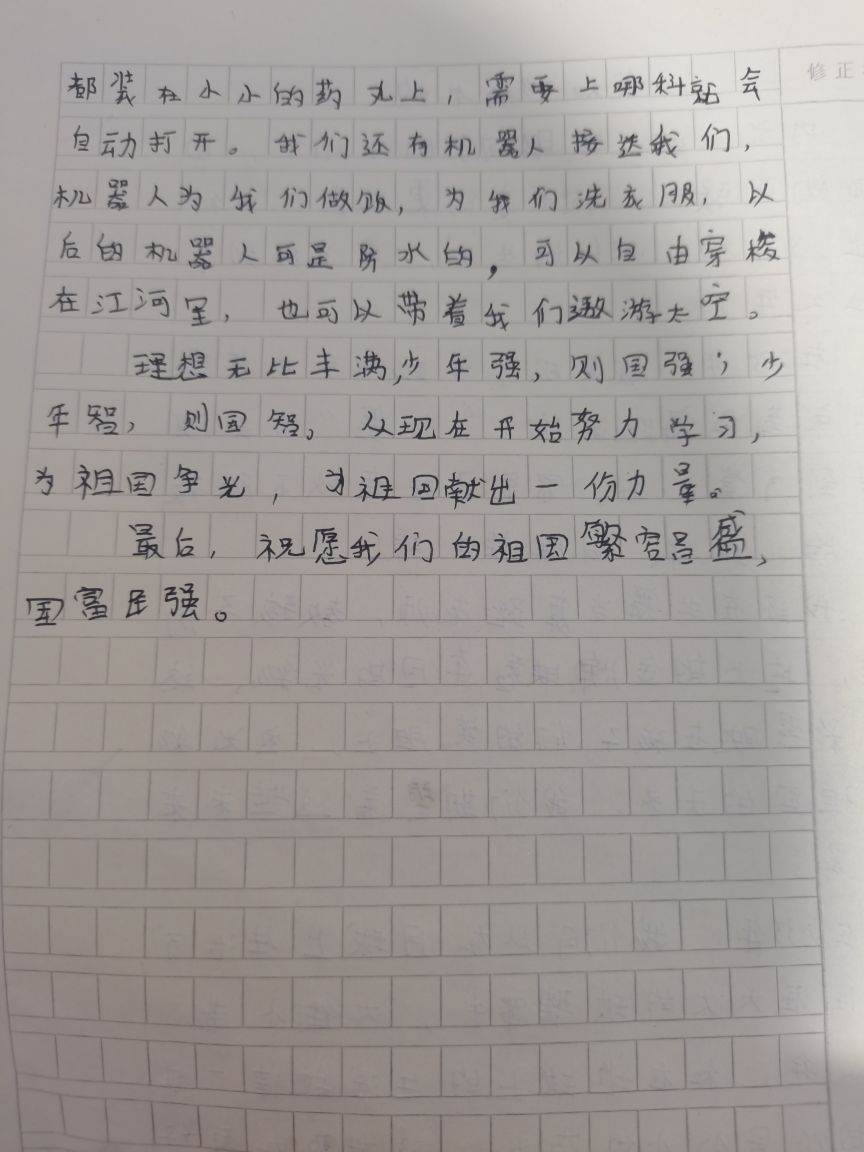 修正
都装在小小的药丸上，需要上哪科就会
自动打开。我们还有机器人接送我们，
机器人为我们做饭，为我们洗衣服，以
后的机器人可是防水的，可以自由穿梭
在江河里，也可以带着我们遨游太空。
理想无比丰满，少年强，则国强；少
年智，则国智。从现在开始努力学习，
为祖国争光，为祖国献出一份力量。
最后，祝愿我们的祖国繁容昌盛，
国富民强。